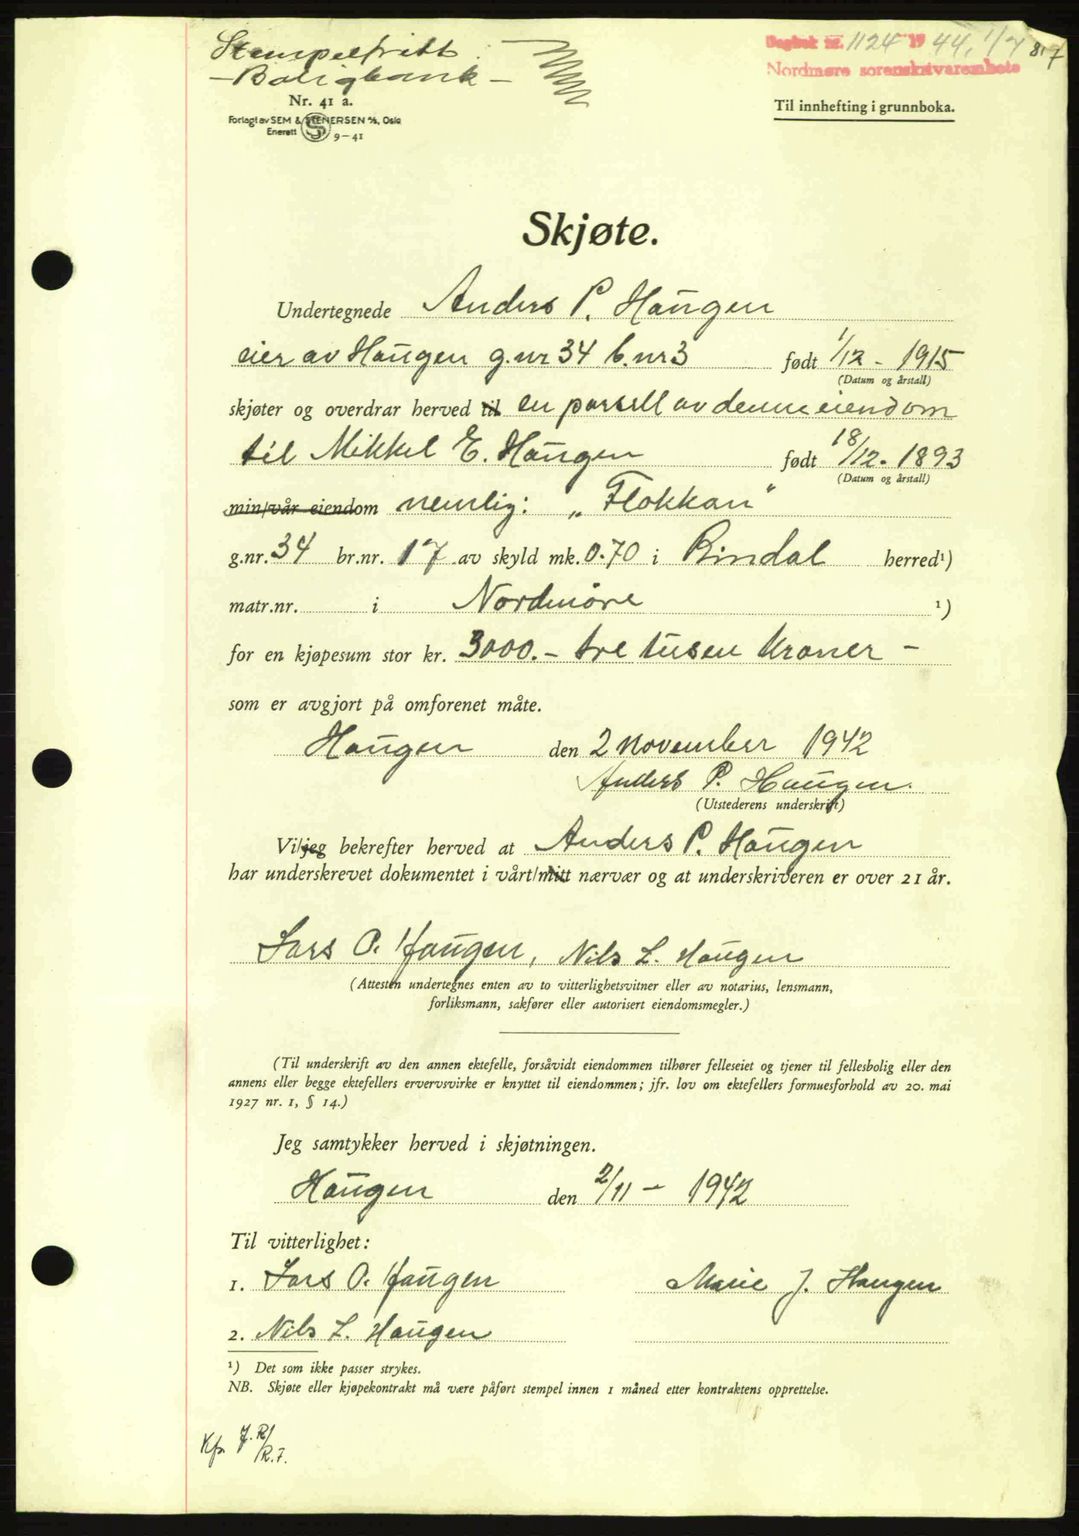 Stempelfritt
- Boligbank -
Nr. 41 a.
Forlagt av SEM & STENERSEN A/S, Oslo
Enerett 9-41
Dagbok nr. 1124 19 44, 1/7 817
Nordmøre sorenskrivarembete
Til innhefting i grunnboka.
Skjøte.
Undertegnede Anders P. Haugen
eier av Haugen g.nr 34 b.nr 3 født 1/12 - 1915
(Datum og årstall)
skjøter og overdrar herved til en parsell av denne eiendom
til Mikkel E. Haugen født 18/12 - 1893
(Datum og årstall)
min/vår eiendom nemlig: „Flokkan"
g.nr. 34 br.nr. 17 av skyld mk. 0.70 i Rindal herred¹)
matr.nr. i Nordmøre ¹)
for en kjøpesum stor kr. 3000.- tre tusen kroner -
som er avgjort på omforenet måte.
Haugen den 2 november 1942
Anders P. Haugen
(Utstederens underskrift)
Vi/jeg bekrefter herved at Anders P. Haugen
har underskrevet dokumentet i vårt/mitt nærvær og at underskriveren er over 21 år.
Lars O. Haugen, Nils L. Haugen
(Attesten undertegnes enten av to vitterlighetsvitner eller av notarius, lensmann,
forliksmann, sakfører eller autorisert eiendomsmegler.)
(Til underskrift av den annen ektefelle, forsåvidt eiendommen tilhører felleseiet og tjener til fellesbolig eller den
annens eller begge ektefellers ervervsvirke er knyttet til eiendommen; jfr. lov om ektefellers formuesforhold av 20. mai
1927 nr. 1, § 14.)
Jeg samtykker herved i skjøtningen.
Haugen den 2/11 - 1942
Til vitterlighet:
1. Lars O. Haugen Marie J. Haugen
2. Nils L. Haugen
¹) Det som ikke passer strykes.
NB. Skjøte eller kjøpekontrakt må være påført stempel innen 1 måned etter kontraktens opprettelse.
Kfr. J.R/
R.F.